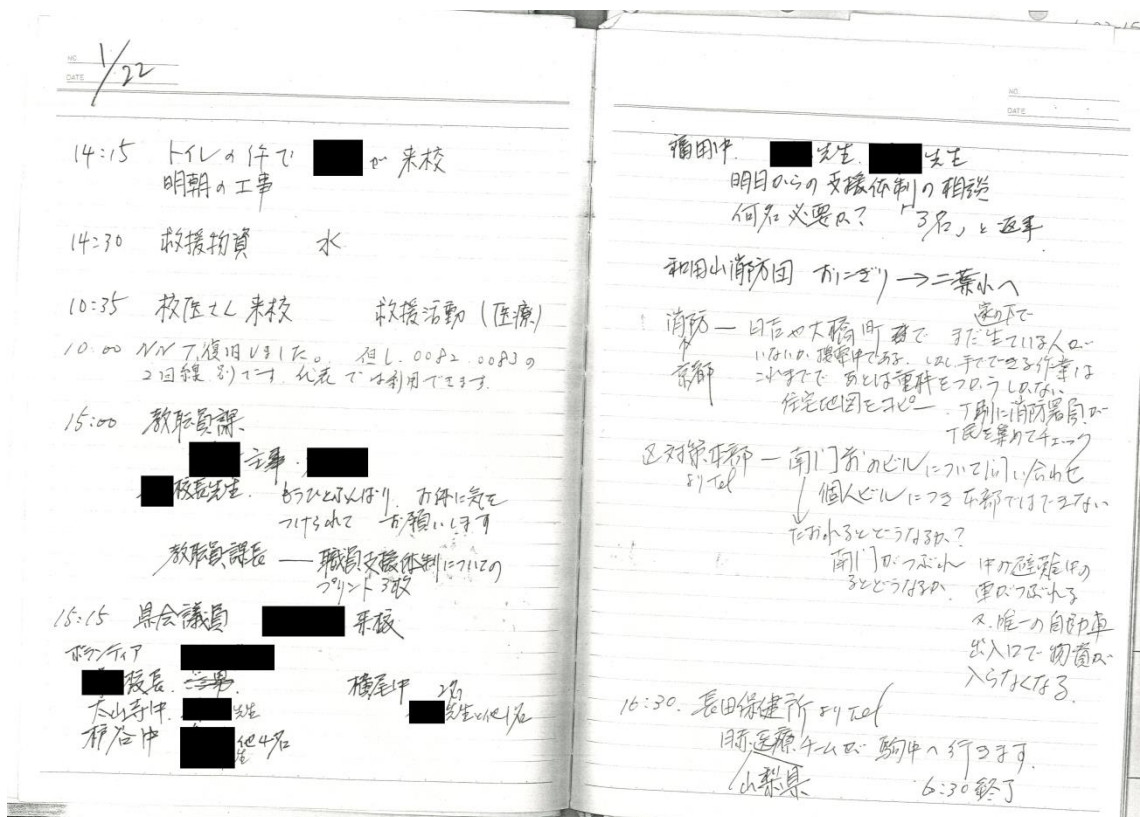 NO.
DATE
1/22
14:15 トイレの件で が来校
明朝の工事
14:30 救援物資 水
10:35 校医さん来校 救援活動(医療)
10:00 NTT復旧しました。但し.0082.0083の
2回線別です.代表では利用できます.
15:00 教職員課.
主事.
校長先生. もうひとふんばり. お体に気を
つけられて お願いします
教職員課長 ― 職員支援体制についての
プリント3枚
15:15 県会議員 来校
ボランティア
校長. 横尾中 2名
太山寺中. 先生 先生と他1名
押谷中 他4名
NO.
DATE
福田中. 先生. 先生
明日からの支援体制の相談
何名必要か? 「3名」と返事
和田山消防団 おにぎり→二葉小へ
消防 ― 日吉や大橋町まで 家の下で まだ生きている人が
京都 いないか捜索中である.しかし手でできる作業は
これまでで あとは重機をつかうしかない
住宅地図をコピー.丁別に消防署員が
丁民を集めてチェック
区対策本部 ― 南門前のビルについて問い合わせ
よりTel 個人ビルにつき本部ではできない
↓
たおれるとどうなるか?
南門がつぶれ
るとどうなるか. 中の避難中の
車がつぶれる
又.唯一の自動車
出入口で物資が
入らなくなる.
16:30. 長田保健所よりTel
日赤医療チームが 駒中へ行きます.
山梨県 6:30終了